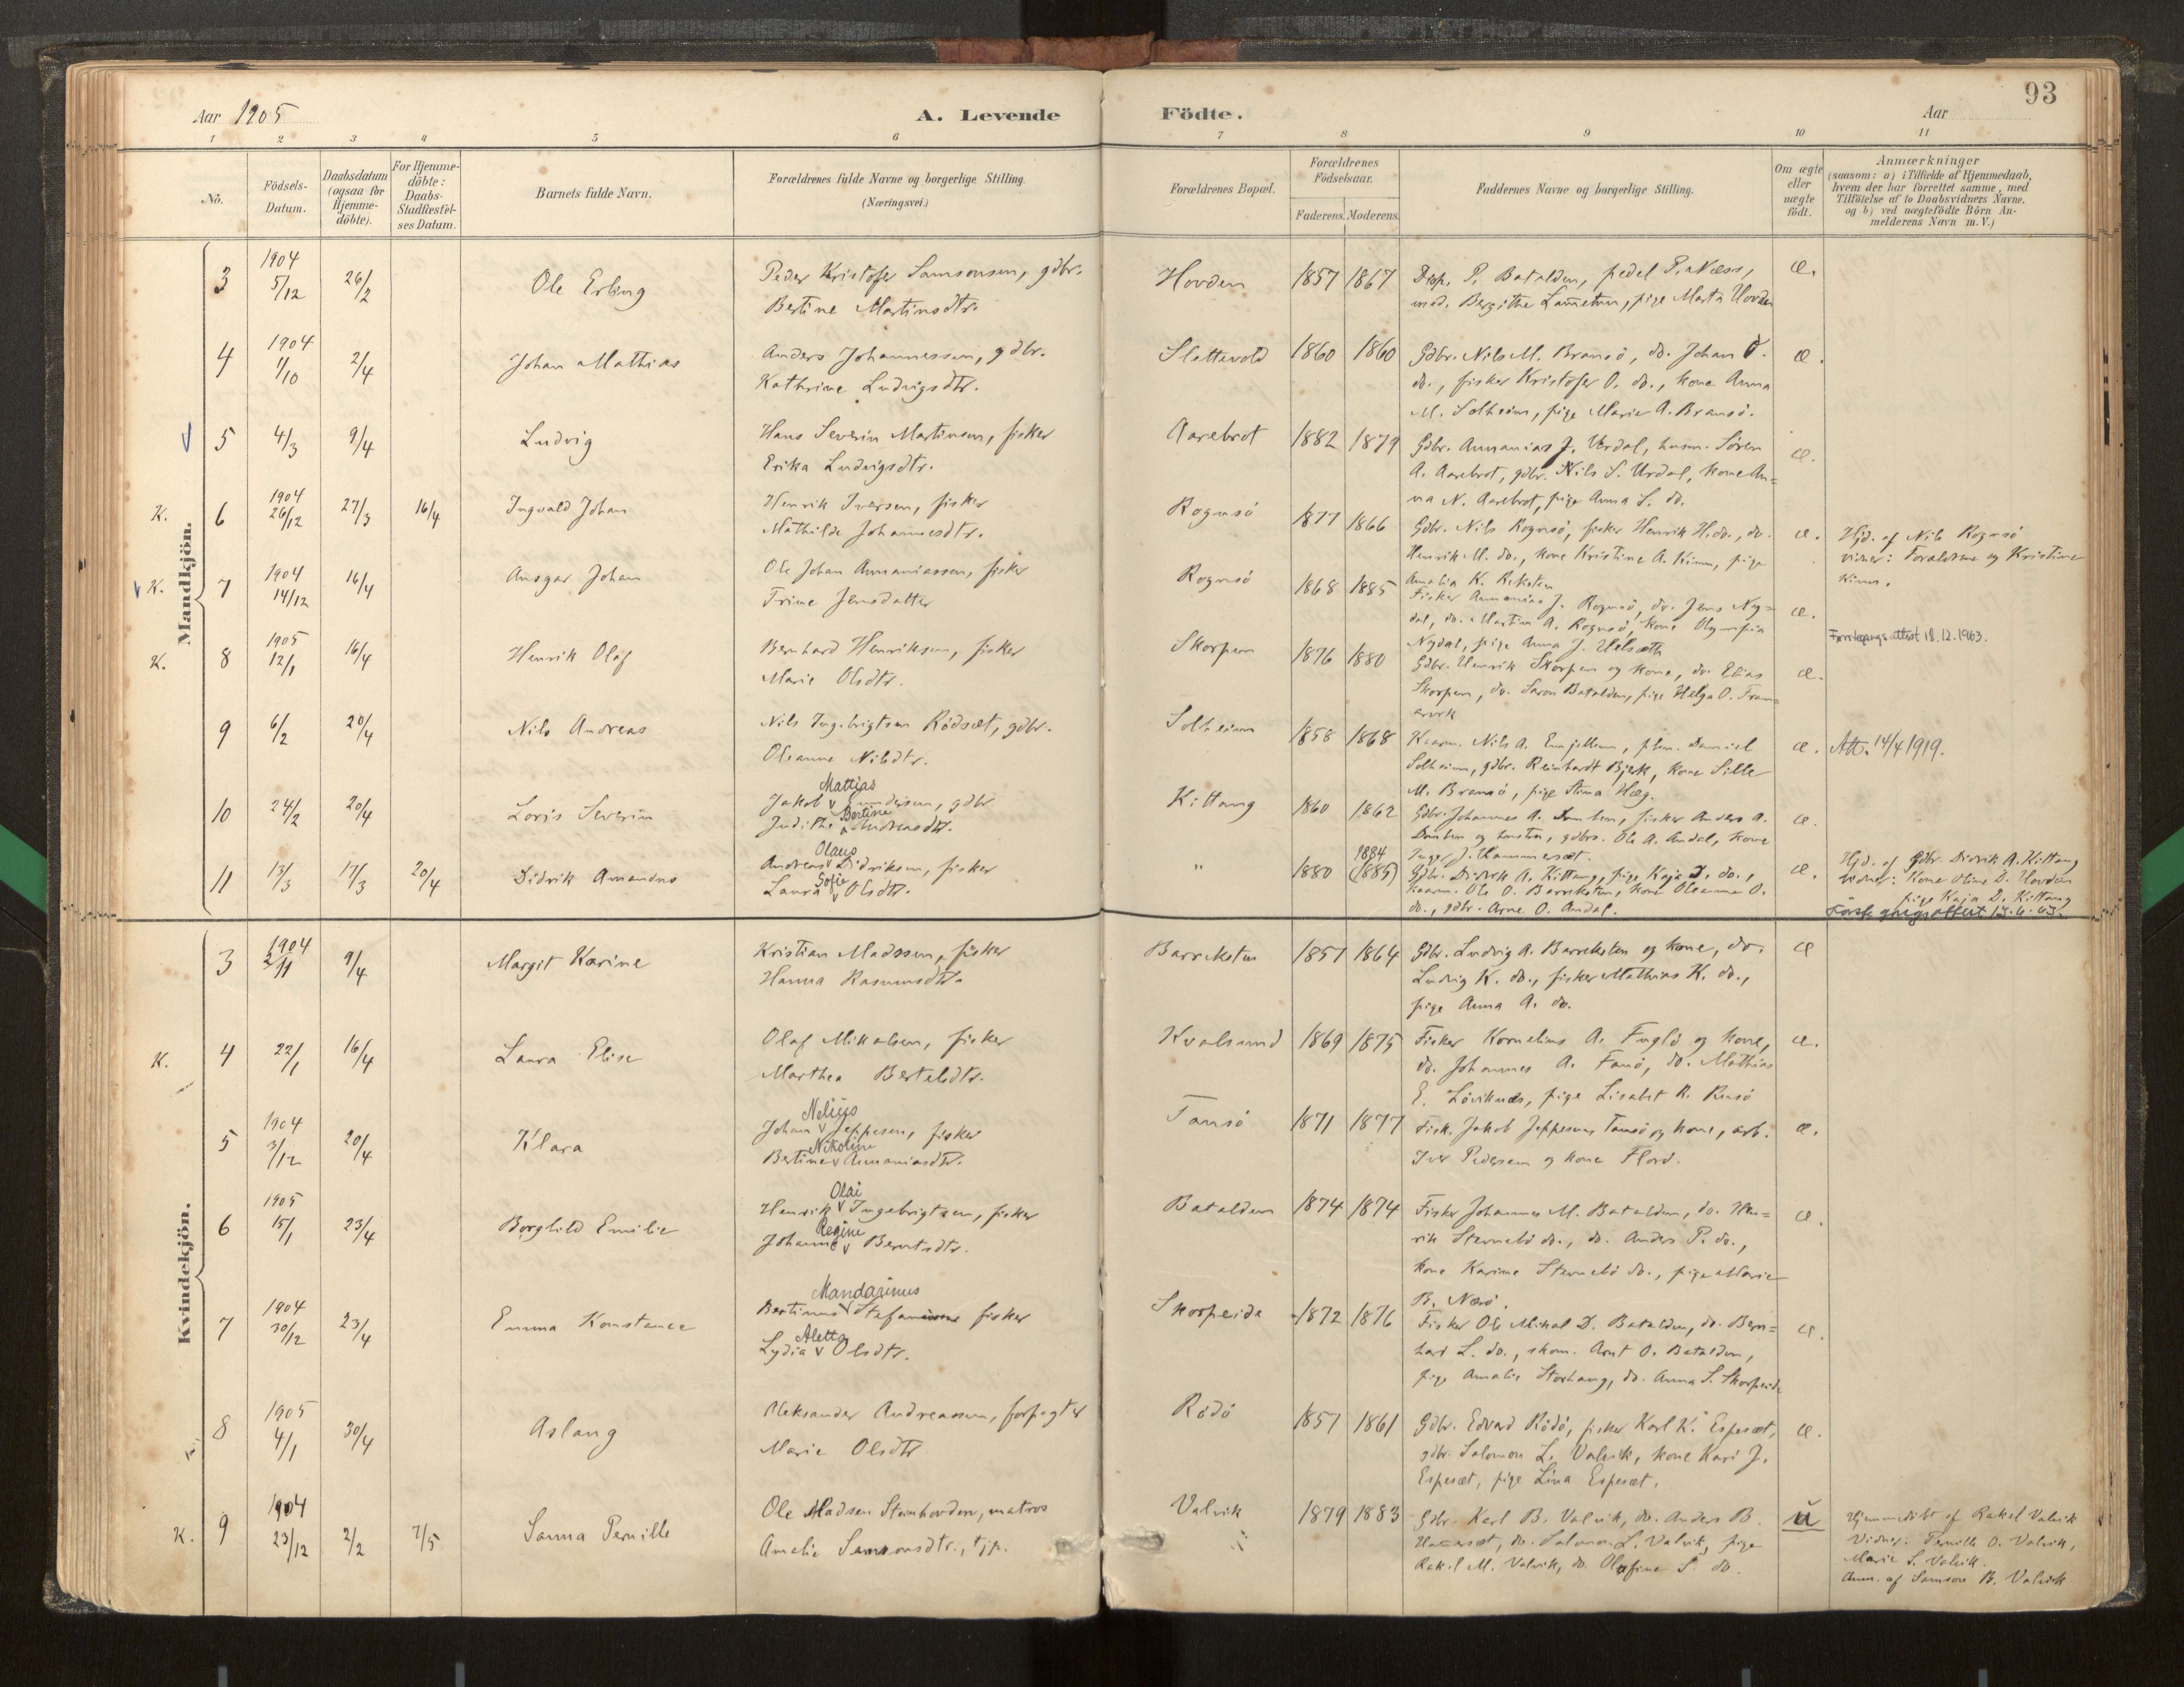 93
Aar 1905
A. Levende
Födte.
Aar
1 2 3 4 5 6 7 8 9 10 11
Nô.
Födsels-
Datum.
Daabsdatum
(ogsaa for
Hjemme-
döbte).
For Hjemme-
döbte:
Daabs-
Stadfæstel-
ses Datum.
Barnets fulde Navn.
Forældrenes fulde Navne og borgerlige Stilling.
(Næringsvei.)
Forældrenes Bopæl.
Forældrenes
Födselsaar.
Faderens. Moderens.
Faddernes Navne og borgerlige Stilling.
Om ægte
eller
uægte
födt.
Anmærkninger
(saasom: a) i Tilfælde af Hjemmedaab,
hvem der har forrettet samme, med
Tilföielse af to Daabsvidners Navne.
og b) ved uægtefödte Börn An-
melderens Navn m. V.)
Mandkjön.
3
1904
5/12
26/2
Ole Erling
Peder Kristofer Samsonsen, gdbr.
Bertine Martinsdtr.
Hovden
1857 1867
Disp. P. Batalden, pedel P. Næss,
mad. Bergithe Lammetun, pige Marta Hovden
æ.
4
1904
1/10
2/4
Johan Mathias
Anders Johannessen, gdbr.
Kathrine Ludvigsdtr.
Slettevold
1860 1860
Gdbr. Nils M. Bransö, do. Johan O.
do., fisker Kristofer O. do., kone Anna
M. Solheim, pige Marie A. Bransö.
æ.
5
4/3
9/4
Ludvig
Hans Severin Martinsen, fisker
Erika Ludvigsdtr.
Aarebrot
1882 1879
Gdbr. Annanias J. Urdal, husm. Sören
A. Aarebrot, gdbr. Nils S. Urdal, kone An=
na N. Aarebrot, pige Anna S. do.
æ.
K.
6
1904
26/12
27/3
16/4
Ingvald Johan
Henrik Iversen, fisker
Mathilde Johannesdtr.
Rognsö
1877 1866
Gdbr. Nils Rognsö, fisker Henrik H. do., do.
Henrik M. do., kone Kristine A. Kinn, pige
Amalia K. Reksten
æ.
Hjd. af Nils Rognsö
vidner: Forældrene og Kristine
Kinn.
K.
7
1904
14/12
16/4
Ansgar Johan
Ole Johan Annaniassen, fisker
Trine Jensdatter
Rognsö
1868 1885
Fisker Annanias J. Rognsö, do. Jens Ny=
dal, do. Martin A. Rognsö, kone Olympia
Nydal, pige Anna J. Helsæth
æ.
Førstegangsattest 18.12.1963.
K.
8
1905
12/1
16/4
Henrik Olaf
Bernhard Henriksen, fisker
Marie Olsdtr.
Skorpen
1876 1880
Gdbr. Henrik Skorpen og kone, do. Elias
Skorpen, do. Saron Batalden, pige Helga O. Fram=
arvik
æ.
9
6/2
20/4
Nils Andreas
Nils Ingebrigtsen Rödsæt, gdbr.
Oleanne Nilsdtr.
Solheim
1858 1868
Solheim, gdbr. Reinhardt Bjerk, kone Sille
M. Bransö, pige Stina Hæg.
æ.
Att. 14/4 1919.
10
24/2
20/4
Loris Severin
Mattias
Jakob v Gundersen, gdbr
Bertine
Judithe v Andreasdtr.
Kittang
1860 1862
Gdbr. Johannes A. Domben, fisker Anders A.
Domben og hustru, gdbr. Ole A. Andal, kone
Inga J. Hammersæt.
æ.
11
13/3
17/3
20/4
Didrik Amandus
Olaus
Andreas v Didriksen, fisker
Sofie
Laura v Olsdtr.
"
1880
1884
(1885)
Gdbr. Didrik A. Kittang, pige Kaja D. do.,
kaarm. Ole O. Barreksten, kone Oleanna O.
do., gdbr. Arne O. Andal.
æ.
Hjd. af Gdbr. Didrik A. Kittang
vidner: Kone Oline D. Hovden
pige Kaja D. Kittang
Kvindekjön.
3
1904
9/4
Margit Karine
Kristian Madssen, fisker
Hanna Rasmusdtr.
Barreksten
1857 1864
Gdbr. Ludvig A. Barreksten og kone, do.
Ludvig K. do., fisker Mathias K. do.,
pige Anna A. do.
æ
K.
4
22/1
16/4
Laura Elise
Olaf Mikalsen, fisker
Marthea Bertelsdtr.
Kvalsund
1869 1875
Fisker Kornelius A. Fuglö og kone,
do. Johannes A. Fanö, do. Mathias
E. Löviknes, pige Lisabet R. Rensö
æ.
5
1904
3/12
20/4
Klara
Nelius
Johan v Jeppesen, fisker
Nikoline
Bertine v Annaniasdtr.
Tansö
1871 1877
Fisk. Jakob Jeppesen Tansö og kone, arb.
Iver Pedersen og kone Florö.
æ.
6
1905
15/1
23/4
Borghild Emilie
Olai
Henrik v Ingebrigtsen, fisker
Regine
Johanne v Berntsdtr.
Batalden
1874 1874
Fisker Johannes M. Batalden, do. Hen=
rik Sternebö do., do. Anders P. do.,
kone Karine Sternebö do., pige Marie
B. Næsö.
æ.
7
1904
30/12
23/4
Emma Konstance
Mandarinus
Bertinus v Stefanussen fisker
Aletta
Lydia v Olsdtr.
Skorpeide
1872 1876
Fisker Ole Mikal D. Batalden, do. Bern=
hard L. do., skom. Arnt O. Batalden,
pige Amalie Storhaug, do. Anna S. Skorpeide
æ.
8
1905
4/1
30/4
Aslaug
Aleksander Andreassen, forpagter
Marie Olsdtr
Rödö
1857 1861
Gdbr. Edvard Rödö, fisker Karl K. Espesæt,
gdbr. Salomon L. Valvik, kone Kari J.
Espesæt, pige Lina Espesæt.
æ.
K.
9
1904
23/12
2/2
7/5
Sanna Pernille
Ole Madsen Steinhovden, matros
Amalie Samsonsdtr., tjp.
Valvik
1879 1883
Gdbr. Karl B. Valvik, do. Anders B.
do. Salomon L. Valvik, pige
Rakel M. Valvik, do. Olufine S. do.
u
Hjemmedöbt af Rakel Valvik
Vidner: Pernille O. Valvik,
Marie S. Valvik.
Anm. af Samson B. Valvik